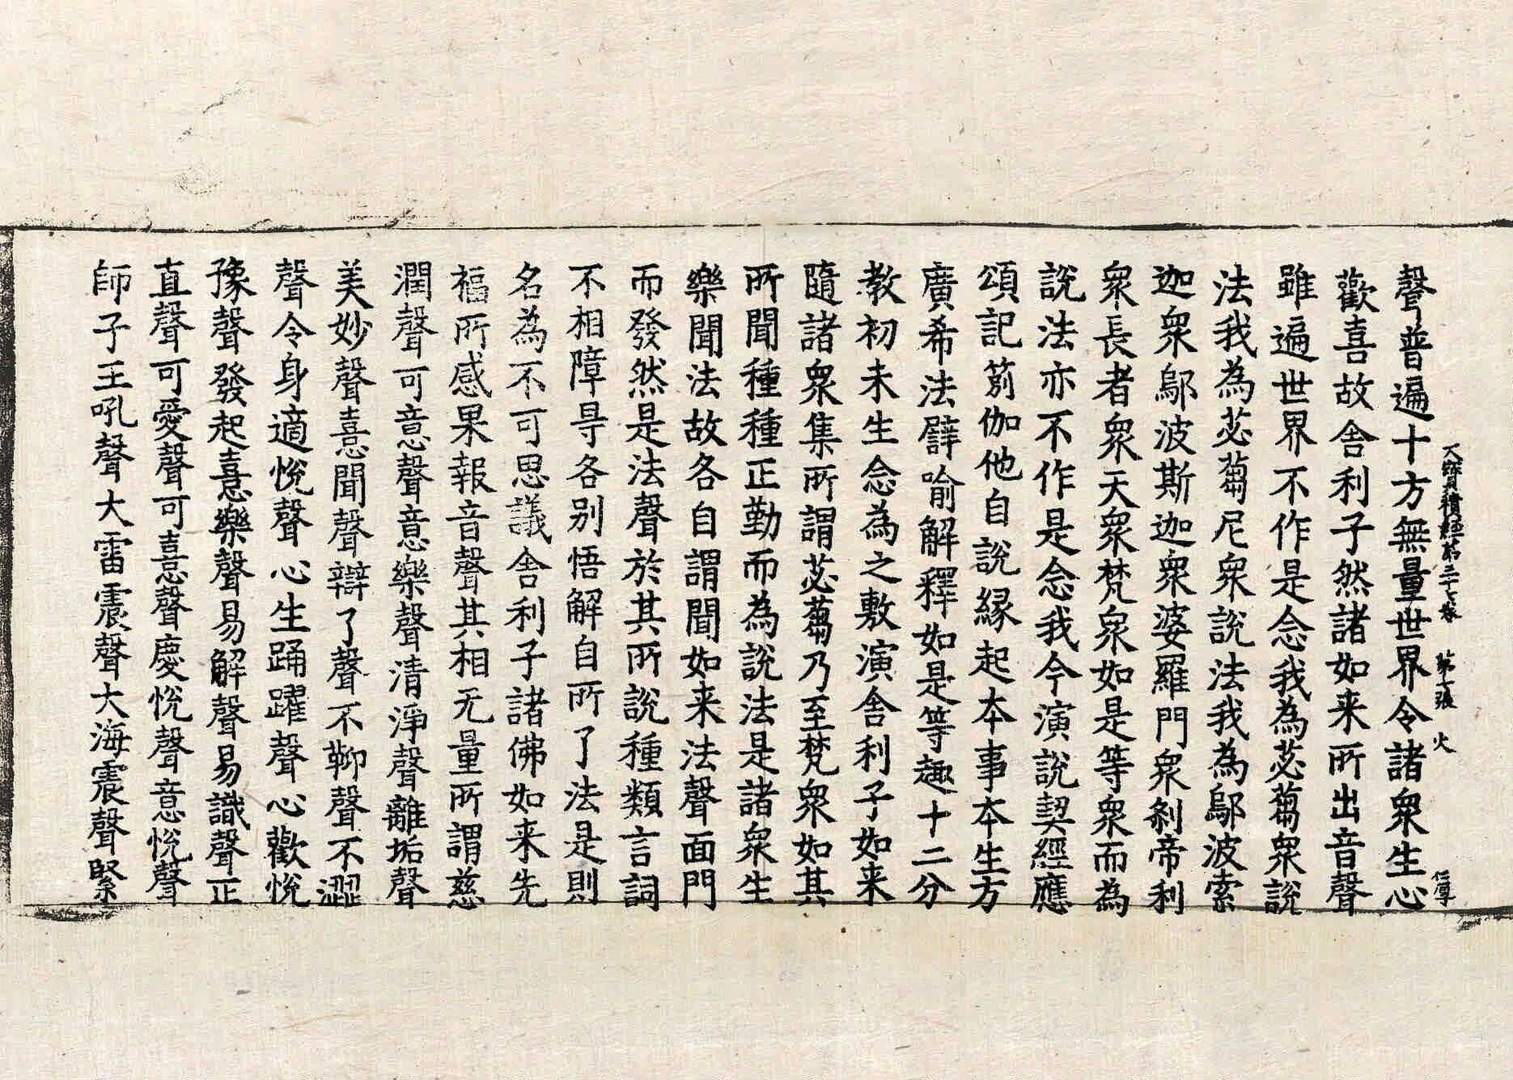 大寶積經第三十七卷　第七張　火　仁專
聲普遍十方無量世界令諸衆生心
歡喜故舍利子然諸如来所出音聲
雖遍世界不作是念我為苾蒭衆說
法我為苾蒭尼衆說法我為鄔波索
迦衆鄔波斯迦衆婆羅門衆剎帝利
衆長者衆天衆梵衆如是等衆而為
說法亦不作是念我今演說契經應
頌記莂伽他自說緣起本事本生方
廣希法譬喻解釋如是等趣十二分
教初未生念為之敷演舍利子如来
隨諸衆集所謂苾蒭乃至梵衆如其
所聞種種正勤而為說法是諸衆生
樂聞法故各自謂聞如来法聲面門
而發然是法聲於其所說種類言詞
不相障㝵各別悟解自所了法是則
名為不可思議舍利子諸佛如来先
福所感果報音聲其相无量所謂慈
潤聲可意聲意樂聲清淨聲離垢聲
美妙聲憙聞聲辯了聲不䩕聲不澀
聲令身適悅聲心生踊躍聲心歡悅
豫聲發起憙樂聲易解聲易識聲正
直聲可愛聲可憙聲慶悅聲意悅聲
師子王吼聲大雷震聲大海震聲緊